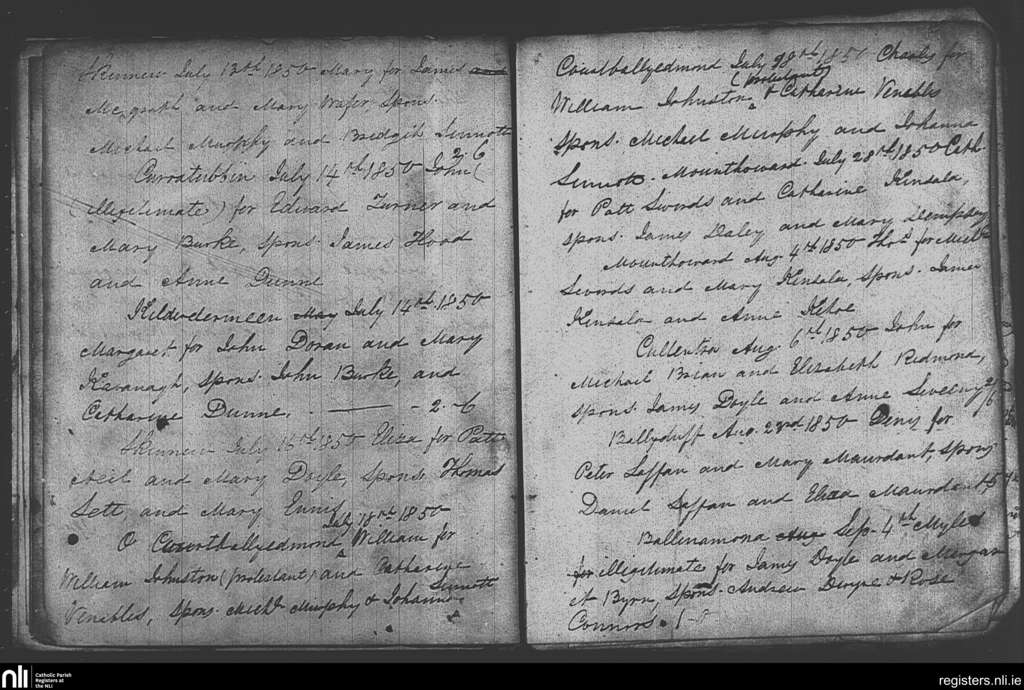 Kennew July 13th 1850 Mary for James
Mcgrath and Mary Wafer Spons.
Michael Murphy and Bridgit Sinnott
2-6
Curratubbin July 14th 1850 John (
(illigitimate) for Edward Turner and
Mary Burke, spons. James Hood
and Anne Dunne
Kildwedermeen May July 14th 1850
Margaret for John Doran and Mary
Kavanagh, spons. John Burke, and
Catharine Dunne. - 2-6
Kennew July 16th 1850 Eliza for Patt
Neil and Mary Doyle, spons. Thomas
Lett, and Mary Ennis
July 18th 1850
O Courtballyedmond William for
William Johnston (protestant) and Catharine
Venables, Spons. Michl. Murphy & Johanna Sinnott
Courtballyedmond July 28th 1850 Charly for
(protestant)
William Johnston & Catharine Venables
spons. Michael Murphy and Johanna
Sinnott. Mounthoward July 28th 1850 Cath.
for Patt Swords and Catharine Kinsala,
spons. James Daley and Mary Dempsey
Mounthoward Aug. 4th 1850 Thos. for Michl.
Swords and Mary Kinsala, spons. James
Kinsala and Anne Kehoe
Cullentra Aug. 6th 1850 John for
Michael Brian and Elizabeth Redmond,
spons. James Doyle and Anne Sweeny 2/6
Ballyduff Aug. 23rd 1850 Deny for
Peter Laffan and Mary Maurdant, spons
Daniel Laffan and Eliza Maurdant
Ballinamona Aug Sep. 4th Myles
for illigitimate for James Doyle and Margar
et Byrn, spons. Andrew Dwyne & Rose
Connors.
nli
Catholic Parish
Registers at
the NLI
registers.nli.ie